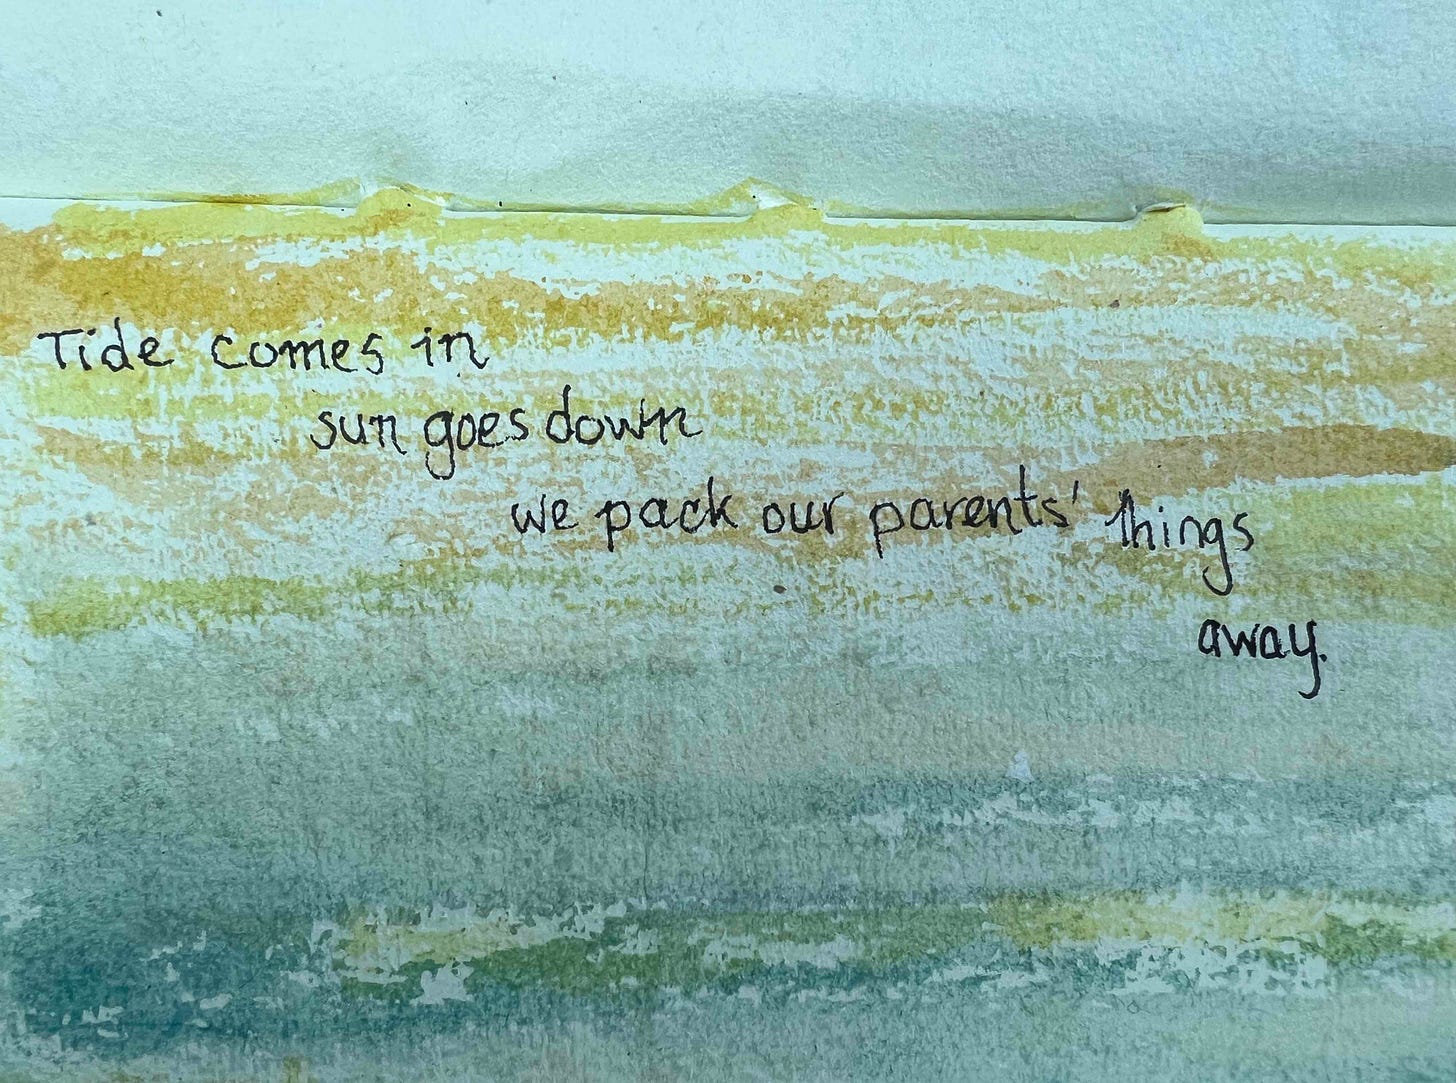 Tide comes in
sun goes down
we pack our parents' things
away.